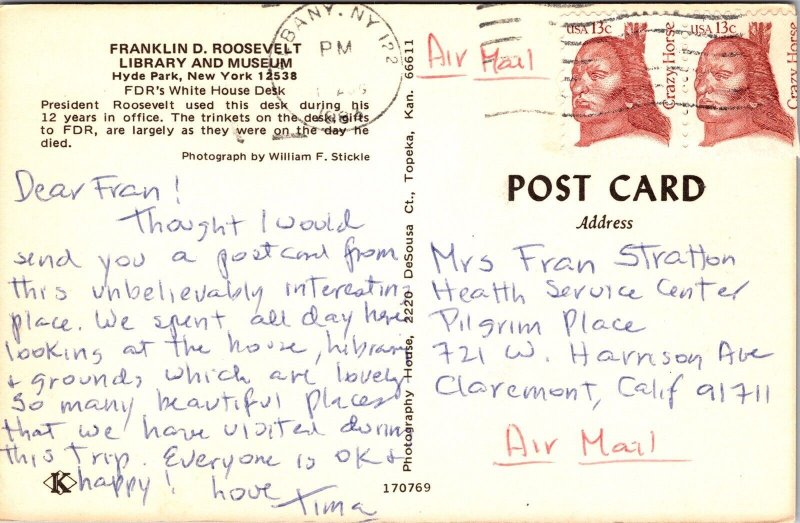 FRANKLIN D. ROOSEVELT
LIBRARY AND MUSEUM
Hyde Park, New York 12538
FDR's White House Desk
President Roosevelt used this desk during his
12 years in office. The trinkets on the desk, gifts
to FDR, are largely as they were on the day he
died.
Photograph by William F. Stickle
Dear Fran!
Thought I would
send you a postcard from
this unbelievably interesting
place. We spent all day here
looking at the house, library
+ grounds which are lovely
So many beautiful places
that we have visited during
this trip. Everyone is OK +
happy! Love
Tima
K
170769
Photography House, 2220 DeSousa Ct., Topeka, Kan. 66611
ALBANY, NY 122
PM
Air Mail
USA 13c
Crazy Horse
USA 13c
Crazy Horse
POST CARD
Address
Mrs Fran Stratton
Health Service Center
Pilgrim Place
721 W. Harrison Ave
Claremont, Calif 91711
Air Mail